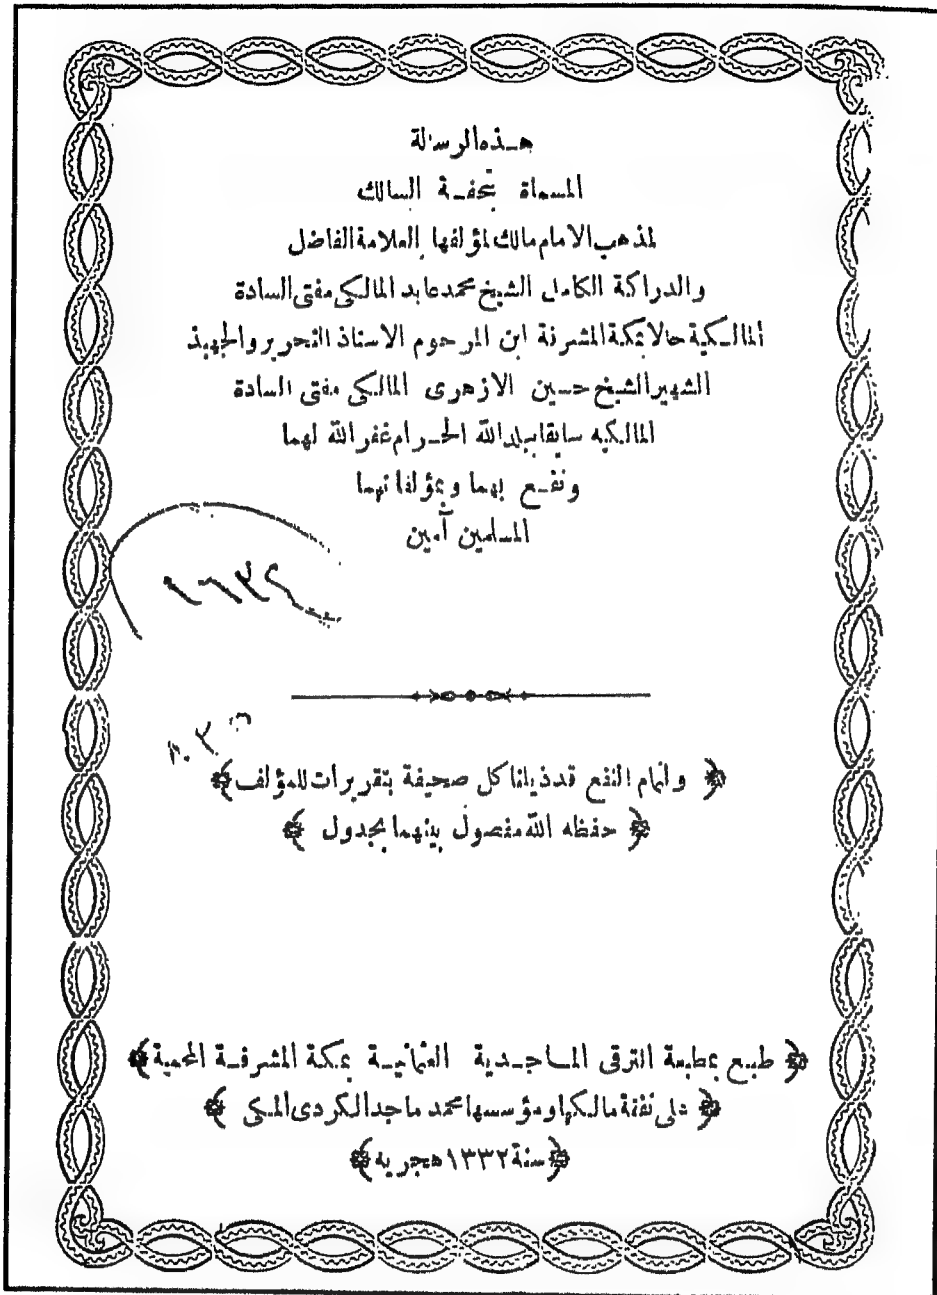 هذه الرسالة
المسماة بتحفة السالك
لمذهب الامام مالك لمؤلفها العلامة الفاضل
والدراكة الكامل الشيخ محمد عابد المالكي مفتى السادة
المالكية حالا بمكة المشرفة ابن المرحوم الاستاذ النحرير والجهبذ
الشهير الشيخ حسين الازهرى المالكي مفتى السادة
المالكيه سابقا ببلد الله الحرام غفر الله لهما
ونفع بهما وبمؤلفاتهما
المسلمين آمين
١٦٣٢
﴿ ولتمام النفع قد ذيلنا كل صحيفة بتقريرات للمؤلف ﴾
﴿ حفظه الله مفصول بينهما بجدول ﴾
﴿ طبع بمطبعة الترقى الماجدية العثمانية بمكة المشرفة المحمية ﴾
﴿ على نفقة مالكها ومؤسسها محمد ماجد الكردى المكى ﴾
﴿ سنة ١٣٣٢ هجريه ﴾